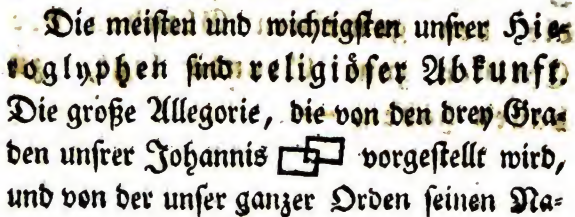 Die meisten und wichtigsten unsrer Hie=
roglyphen sind religiöser Abkunft.
Die große Allegorie, die von den drey Gra=
den unsrer Johannis vorgestellt wird,
und von der unser ganzer Orden seinen Na=